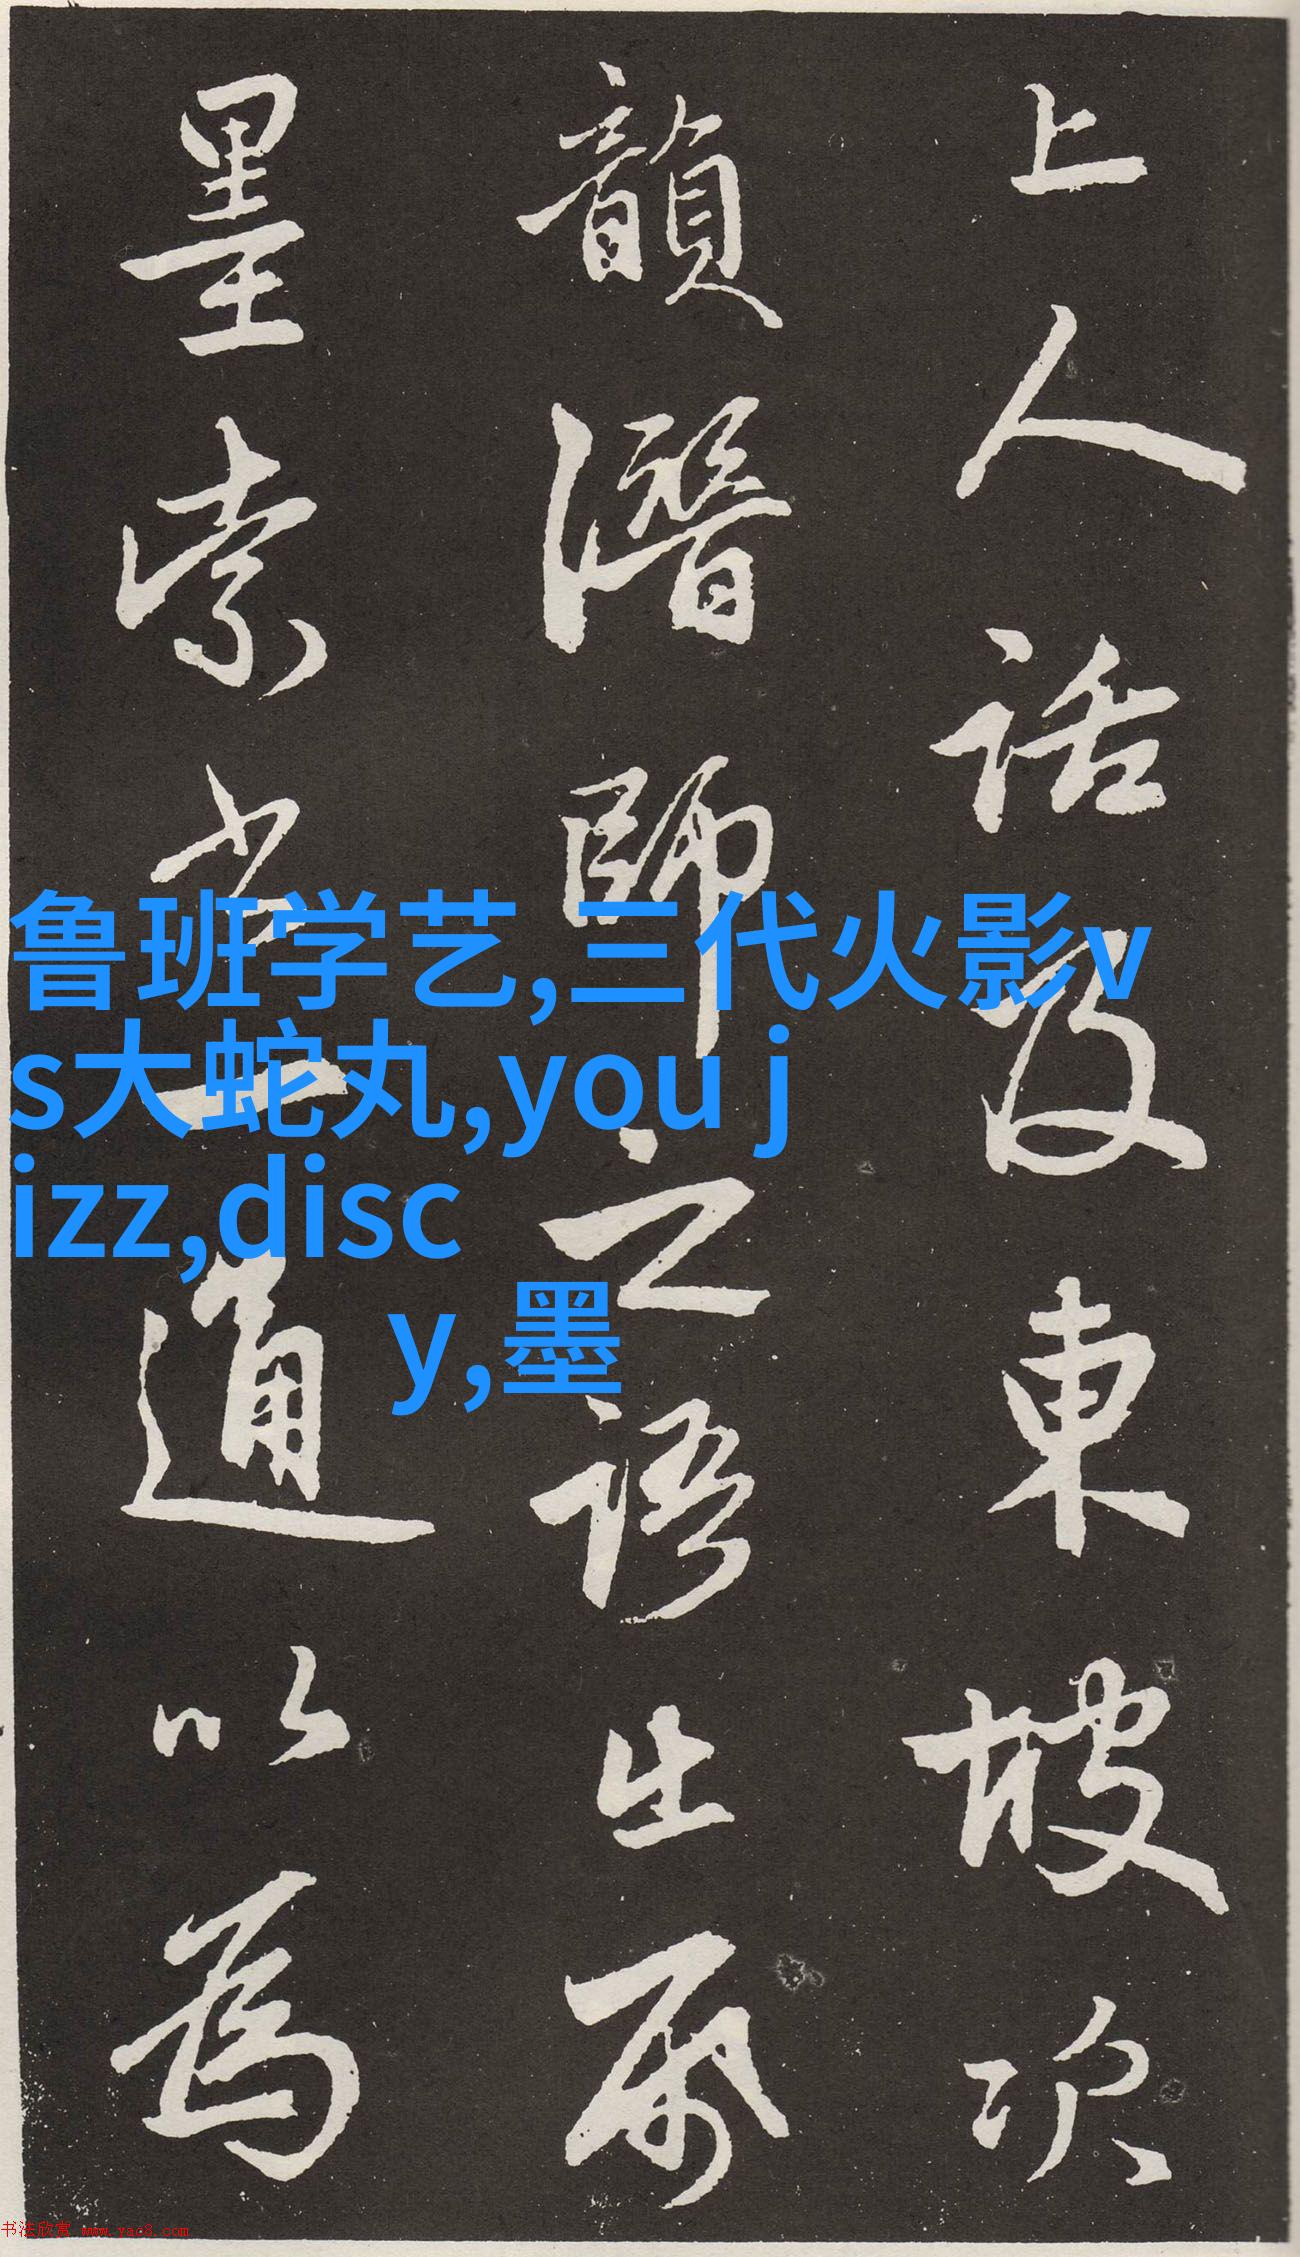 上人話及東坡次
韻潛師之語生風
墨索書一通以為
鲁班学艺,三代火影v
s大蛇丸,you j
izz,disc
y,墨
书法欣赏 www.yac8.com